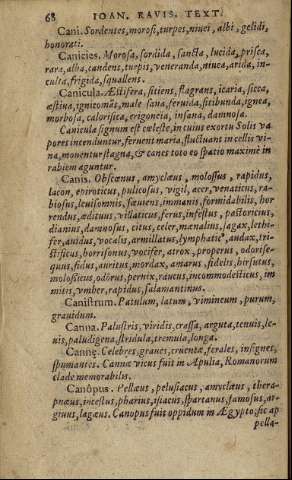 68 IOAN. RAVIS. TEXT.
Cani. Sordentes, morosi, turpes, niuei, albi, gelidi,
honorati.
Canicies. Morosa, sordida, sancta, lucida, prisca,
rara, alba, candens, turpis, veneranda, niuea, arida, in-
culta, frigida, squallens.
Canicula. Æstifera, sitiens, flagrans, icaria, sicca,
æstiua, ignicomãs, male sana, feruida, sitibunda, ignea,
morbosa, calorifica, erigoneia, insana, damnosa.
Canicula signum est cæleste, in cuius exortu Solis va
pores incenduntur, feruent maria, fluctuant in cellis vi-
na, mouentur stagna, & canes toto eo spatio maximè in
rabiem aguntur.
Canis. Obscœnus, amyclæus, molossus, rapidus,
lacon, epiroticus, pulicosus, vigil, acer, venaticus, ra-
biosus, leuisomnis, sæuens, immanis, formidabilis, hor
rendus, ædituus, villaticus, ferus, infestus, pastoricius,
dianius, damnosus, citus, celer, mænalius, sagax, lethi-
fer, auidus, vocalis, armillatus, lymphatic⁹, audax, tri-
stificus, horrisonus, vocifer, atrox, properus, odorise-
quus, fidus, auritus, mordax, amarus, fidelis, hirsutus,
molossicus, odorus, pernix, raucus, incommodesticus, im
mitis, vmber, rapidus, salamantinus.
Canistrum. Patulum, latum, vimineum, purum,
grauidum.
Canna. Palustris, viridis, crassa, arguta, tenuis, le-
uis, paludigena, stridula, tremula, longa.
Cannę. Celebres, graues, cruentæ, ferales, insignes,
spumantes. Cannæ vicus fuit in Apulia, Romanorum
clade memorabilis.
Canôpus. Pellæus, pelusiacus, amyclæus, thera-
pnæus, incestus, pharius, isiacus, spartanus, famosus, ar-
giuus, lagæus. Canopus fuit oppidum in Ægypto, sic ap
pella-